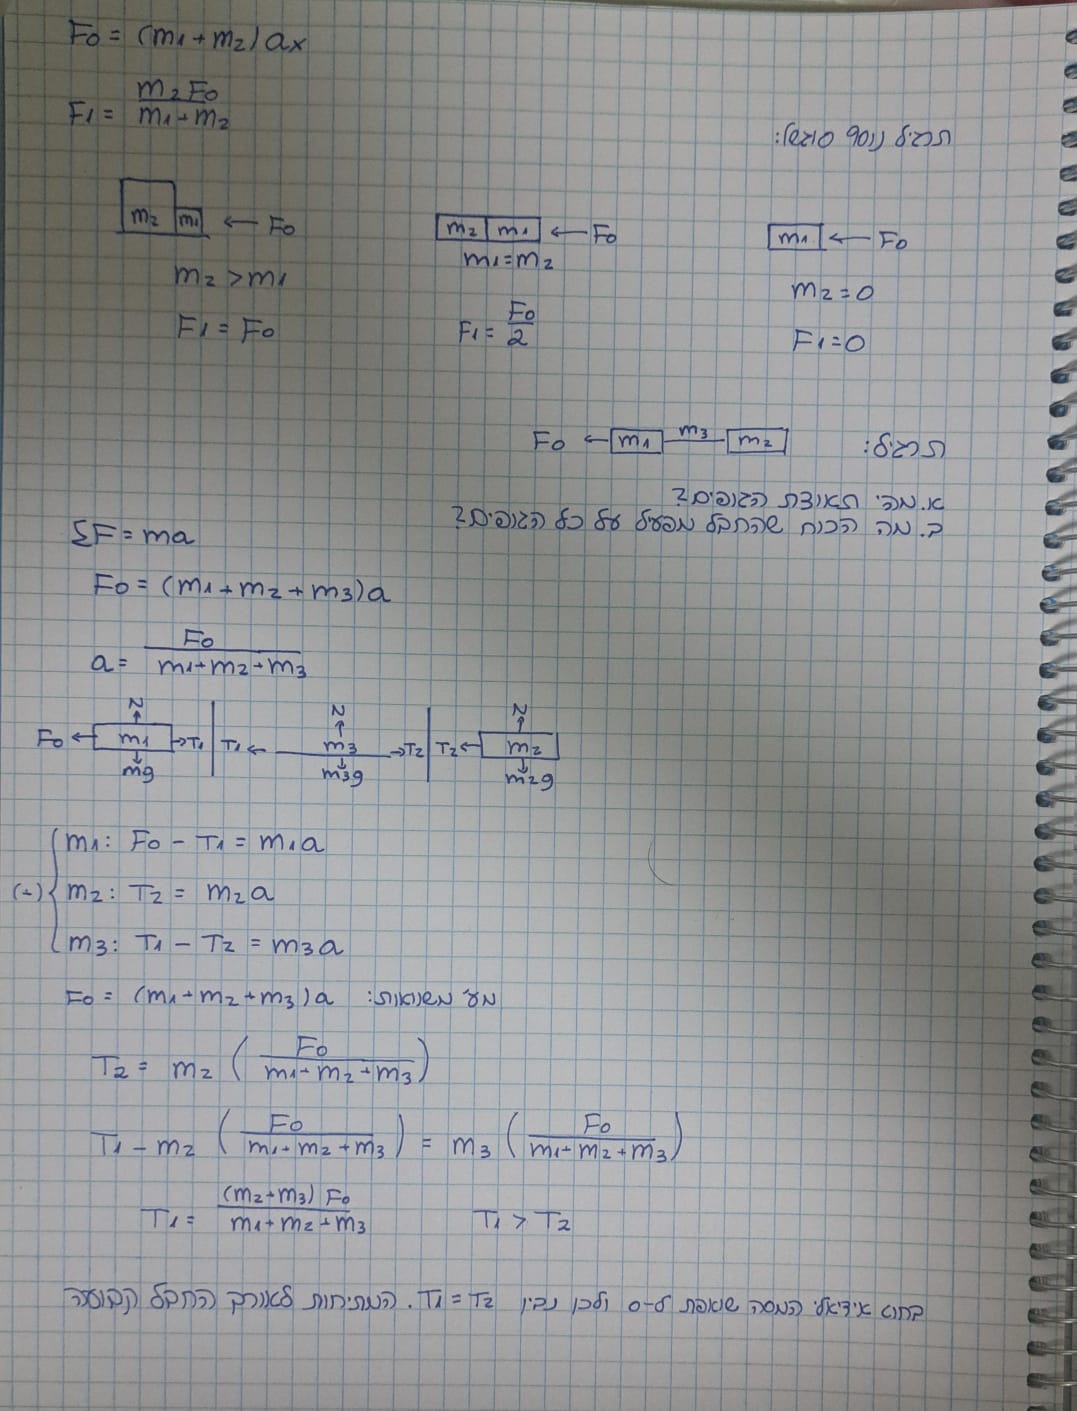 F0 = (m1+m2) ax
F1 = m2F0 / m1+m2
תרגיל נוסף
m2 m1 ← F0
m2 m1 ← F0
m1 ← F0
m2 > m1
m1 = m2
m2 = 0
F1 = F0
F1 = F0 / 2
F1 = 0
תרגיל:
F0 ← m1 m3 m2
א. מהי תאוצת הגופים?
ב. מה הכוח שהחבל מפעיל על כל הגופים?
ΣF = ma
F0 = (m1+m2+m3)a
a = F0 / m1+m2+m3
N N N
F0 ← m1 → T1 T1 ← m3 → T2 T2 ← m2
mg m3g m2g
m1: F0 - T1 = m1a
(+) m2: T2 = m2a
m3: T1 - T2 = m3a
F0 = (m1+m2+m3)a :משוואות
T2 = m2 (F0 / m1+m2+m3)
T1 - m2 (F0 / m1+m2+m3) = m3 (F0 / m1+m2+m3)
T1 = (m2+m3) F0 / m1+m2+m3 T1 > T2
בחוט אידיאלי המסה שואפת ל-0 ולכן נבין T1 = T2. המתיחות לאורך החבל קבועה